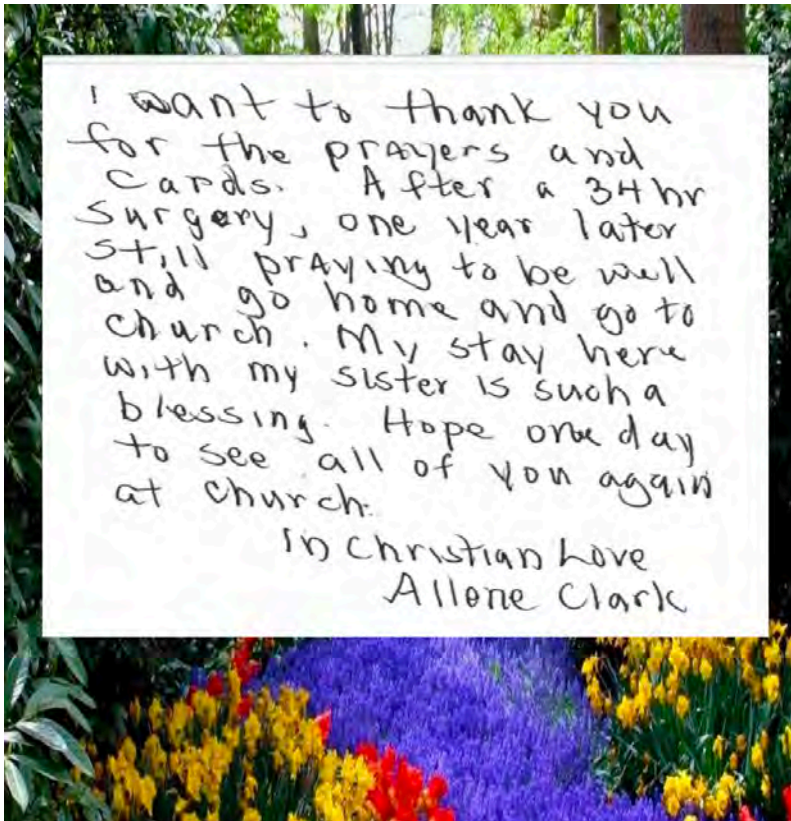 I want to thank you
for the prayers and
Cards. After a 34 hr
surgery, one year later
still praying to be well
and go home and go to
church. My stay here
with my sister is such a
blessing. Hope one day
to see all of you again
at church.
In Christian Love
Allene Clark